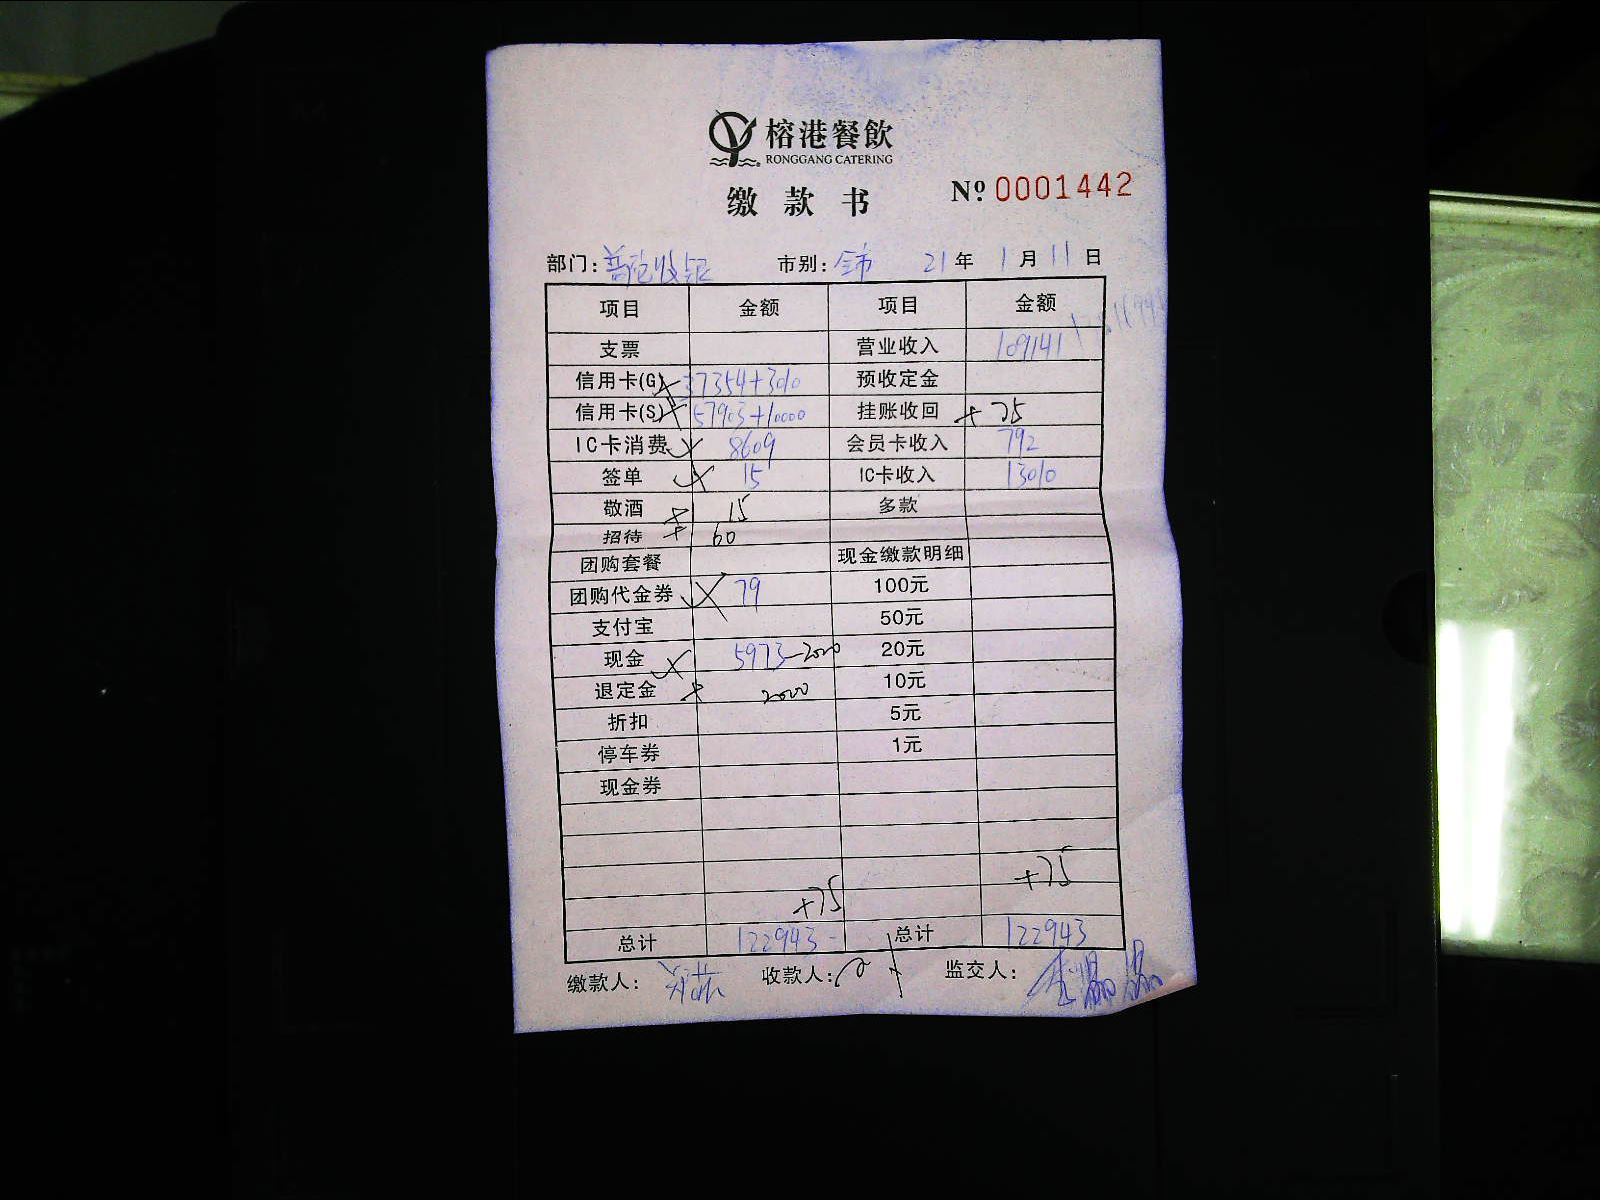 榕港餐飲
RONGGANG CATERING
缴款书 Nº 0001442
部门: 市别:全市 21年1月11日
项目 金额 项目 金额
支票 营业收入 109141
信用卡(G) 37354+3010 预收定金
信用卡(S) 57903+10000 挂账收回 + 75
IC卡消费 8609 会员卡收入 792
签单 15 IC卡收入 13010
敬酒 15 多款
招待 60
团购套餐 现金缴款明细
团购代金券 79 100元
支付宝 50元
现金 5973-2000 20元
退定金 2000 10元
折扣 5元
停车券 1元
现金券
+75 +75
总计 122943 总计 122943
缴款人: 收款人: 监交人: